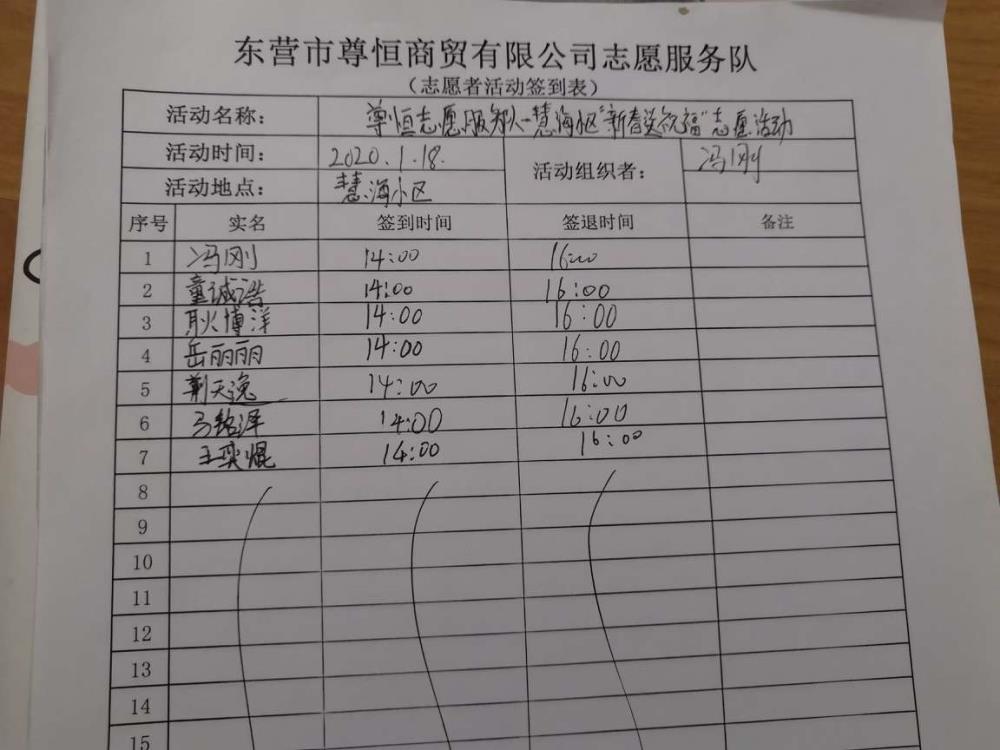 东营市尊恒商贸有限公司志愿服务队
（志愿者活动签到表）
活动名称： 尊恒志愿服务队-慧海小区"新春送祝福"志愿活动
活动时间： 2020.1.18. 活动组织者： 冯刚
活动地点： 慧海小区
序号 实名 签到时间 签退时间 备注
1 冯刚 14:00 16:00
2 童诚浩 14:00 16:00
3 耿博洋 14:00 16:00
4 岳丽丽 14:00 16:00
5 荆天逸 14:00 16:00
6 马铭泽 14:00 16:00
7 王奕焜 14:00 16:00
8
9
10
11
12
13
14
15